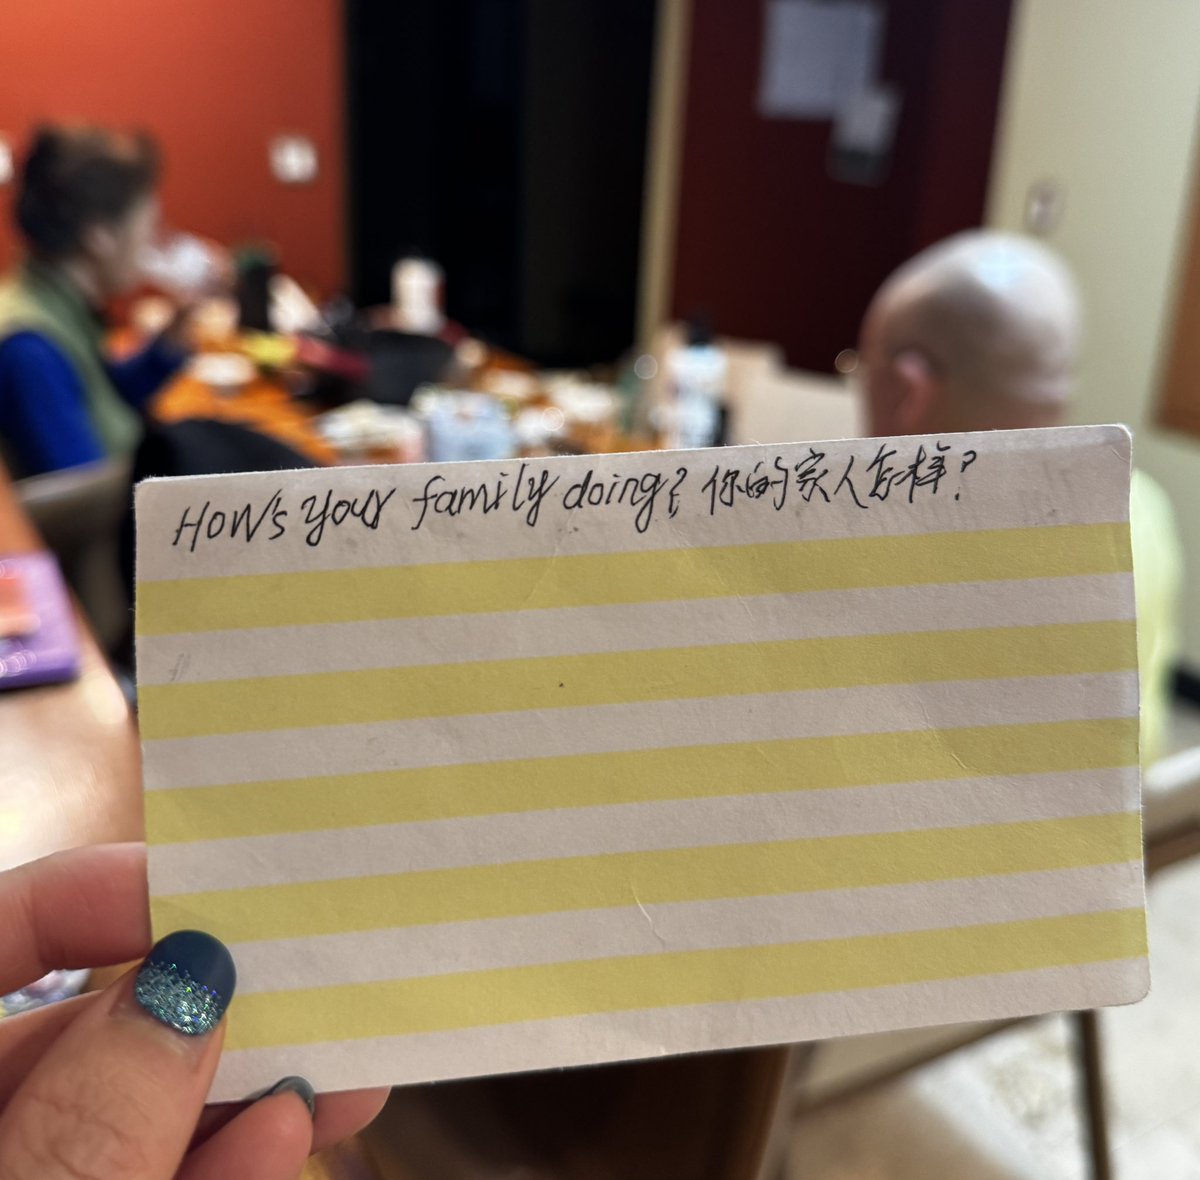 How's your family doing? 你的家人怎样?